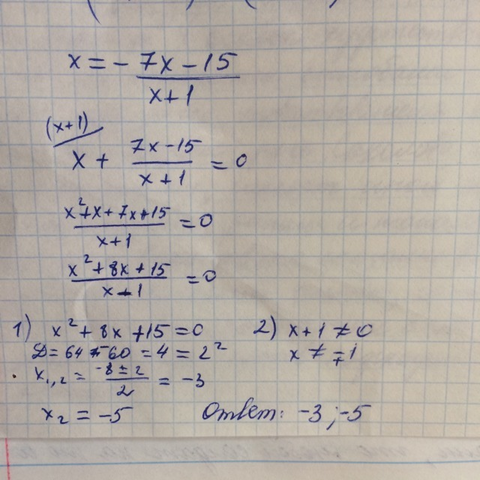 x = - 7x - 15 / x + 1
(x+1)/ x + 7x - 15 / x + 1 = 0
x² + x + 7x + 15 / x + 1 = 0
x² + 8x + 15 / x + 1 = 0
1) x² + 8x + 15 = 0 2) x + 1 ≠ 0
D = 64 - 60 = 4 = 2² x ≠ -1
x₁,₂ = -8 ± 2 / 2 = -3
x₂ = -5 Ответ: -3; -5